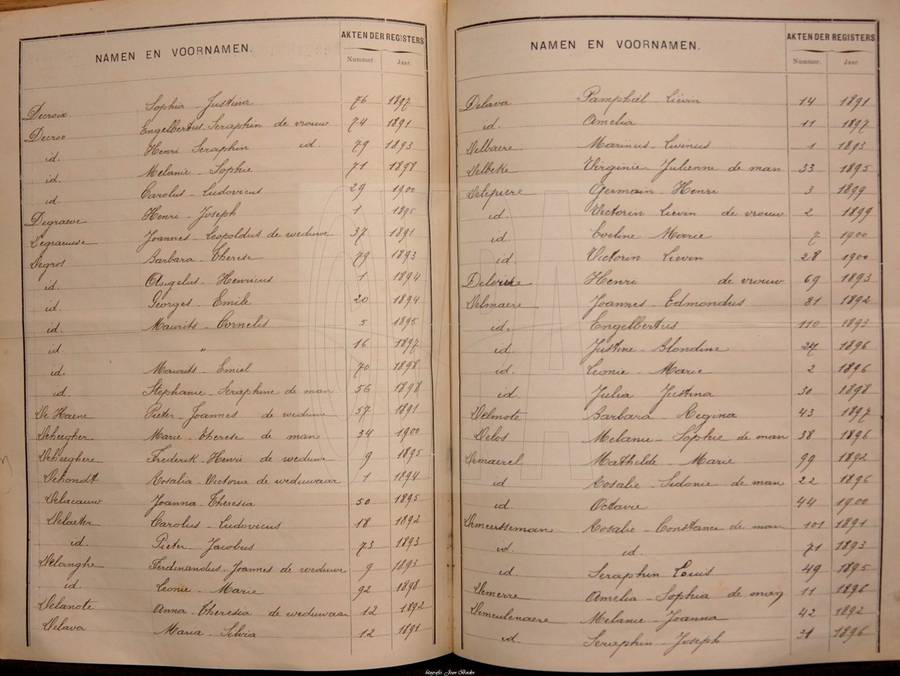 NAMEN EN VOORNAMEN.
AKTEN DER REGISTERS
Nummer. Jaar.
Decroix Sophia - Justina 76 1897
Decroo Engelbertus Seraphin de vrouw 74 1891
id. Henri Seraphin id. 79 1893
id. Melanie - Sophie 71 1898
id. Carolus - Ludovicus 29 1900
Degraeve Henri - Joseph 1 1895
Degraeuwe Joannes - Leopoldus de weduwe 37 1891
Degros Barbara - Therese 79 1893
id. Augelus - Henricus 1 1894
id. Georges - Emile 20 1894
id. Maurits - Cornelis 5 1895
id. " 16 1897
id. Maurits - Emiel 70 1898
id. Stephanie - Seraphine de man 56 1898
De Haene Pieter - Joannes de weduwe 57 1891
Deheegher Marie - Therese de man 34 1900
Frederik - Henri de weduwe 9 1895
Dehondt Rosalia - Victoria de weduwaar 1 1894
Delacauw Joanna - Theresia 50 1895
Delaetter Carolus - Ludovicus 18 1892
id. Pieter Jacobus 73 1893
Delanghe Ferdinandus - Joannes de weduwe 9 1893
id. Leonie - Marie 92 1898
Delanote Anna - Theresia de weduwaar 12 1892
Delava Maria - Silvia 12 1891
NAMEN EN VOORNAMEN.
AKTEN DER REGISTERS
Nummer. Jaar.
Delava Pamphiel Lievin 14 1891
id. Amelia 11 1897
Delbaere Marinus - Livinus 1 1893
Delbeke Virginie - Julienne de man 33 1895
Delepiere Germain Henri 3 1899
id. Victorin Lieven de vrouw 2 1899
id. Eveline Marie 7 1900
id. Victorin Lieven 28 1900
Henri de vrouw 69 1893
Delmaere Joannes - Edmondus 81 1892
id. Engelbertus 110 1893
id. Justine - Blondine 27 1896
id. Leonie - Marie 2 1896
id. Julia Justina 30 1898
Delmote Barbara - Regina 43 1897
Delos Melanie - Sophie de man 38 1896
Demarel Mathilde - Marie 99 1892
id Rosalie - Sidonie de man 22 1896
id Octavie 44 1900
Demeestteman Rosalie - Constance de man 101 1891
id. id. 71 1893
id. Seraphin Louis 49 1895
Demerre Amelia - Sophia de man 11 1896
Demeulenaere Melanie - Joanna 42 1892
id Seraphin - Joseph 31 1896